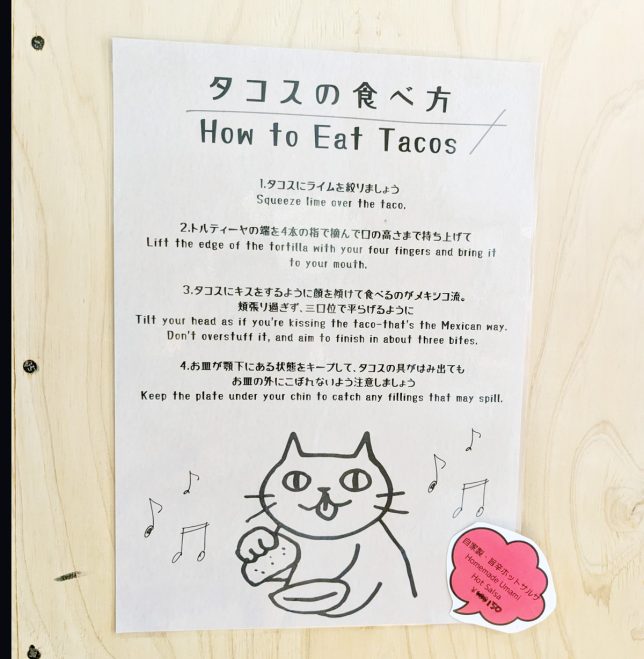 タコスの食べ方
How to Eat Tacos
1.タコスにライムを絞りましょう
Squeeze lime over the taco.
2.トルティーヤの端を4本の指で摘んで口の高さまで持ち上げて
Lift the edge of the tortilla with your four fingers and bring it
to your mouth.
3.タコスにキスをするように顔を傾けて食べるのがメキシコ流。
頬張り過ぎず、三口位で平らげるように
Tilt your head as if you're kissing the taco-that's the Mexican way.
Don't overstuff it, and aim to finish in about three bites.
4.お皿が顎下にある状態をキープして、タコスの具がはみ出ても
お皿の外にこぼれないよう注意しましょう
Keep the plate under your chin to catch any fillings that may spill.
自家製・旨辛ホットサルサ
Homemade Umami
Hot Salsa
¥150